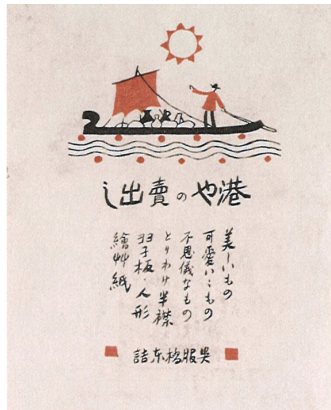 港や の 賣出し
美しいもの
可愛いゝもの
不思儀なもの
とりわけ半襟
羽子板・人形
繪艸紙
呉服橋東詰